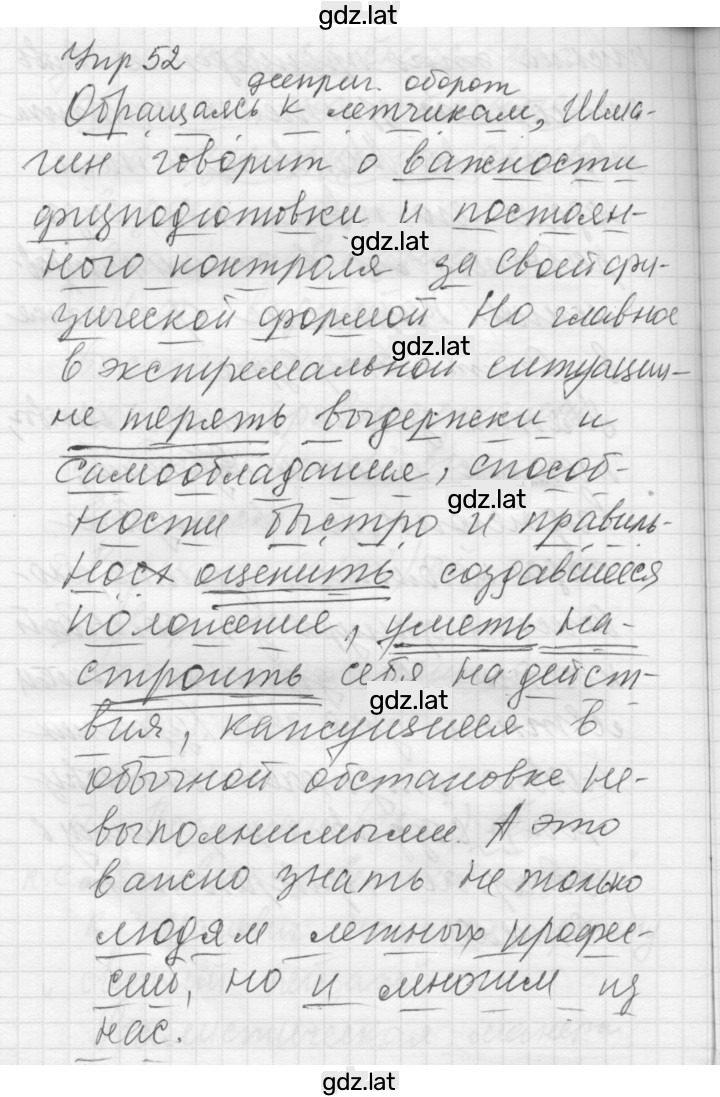 gdz.lat
Упр 52
дееприч. оборот
Обращаясь к летчикам, Шма-
гин говорит о важности
физподготовки и постоян-
gdz.lat
ного контроля за своей фи-
зической формой Но главное
gdz.lat
в экстремальной ситуации-
не терять выдержки и
самообладание, способ-
gdz.lat
ности быстро и правиль-
ност оценить создавшееся
положение, уметь на-
строить себя на дейст-
gdz.lat
вия, кажущиеся в
обычной обстановке не-
выполнимыми. А это
важно знать не только
людям летных профес-
сий, но и многим из
нас.
gdz.lat